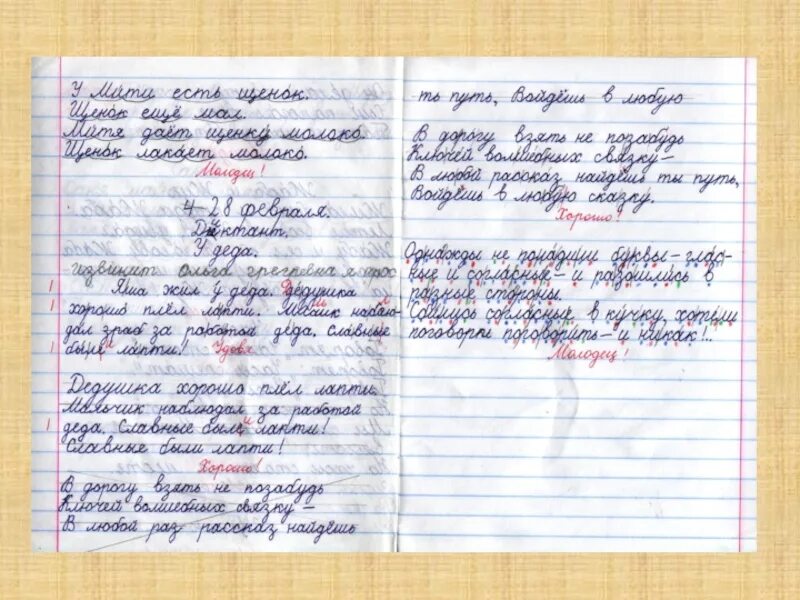 У Мити есть щенок.
Щенок ещё мал.
Митя даёт щенку молоко.
Щенок лакает молоко.
Молодец!
4–28 февраля.
Диктант.
У деда.
извинит Ольга грегревна я прос
Яша жил у деда. Дедушка
хорошо плёл лапти.
за работой деда. Славные
были лапти! Удовл
Дедушка хорошо плёл лапти.
Мальчик наблюдал за работой
деда. Славные были лапти!
Славные были лапти!
Хорошо!
В дорогу взять не позабудь
Ключей волшебных связку —
В любой раз рассказ найдёшь
ть путь, Войдёшь в любую
В дорогу взять не позабудь
Ключей волшебных связку —
В любой рассказ найдёшь ты путь,
Войдёшь в любую сказку.
Хорошо!
Однажды не поладили буквы – глас-
ные и согласные – и разошлись в
разные стороны.
Сошлись согласные в кучку, хотели
поговорки поговорить – и никак!..
Молодец!